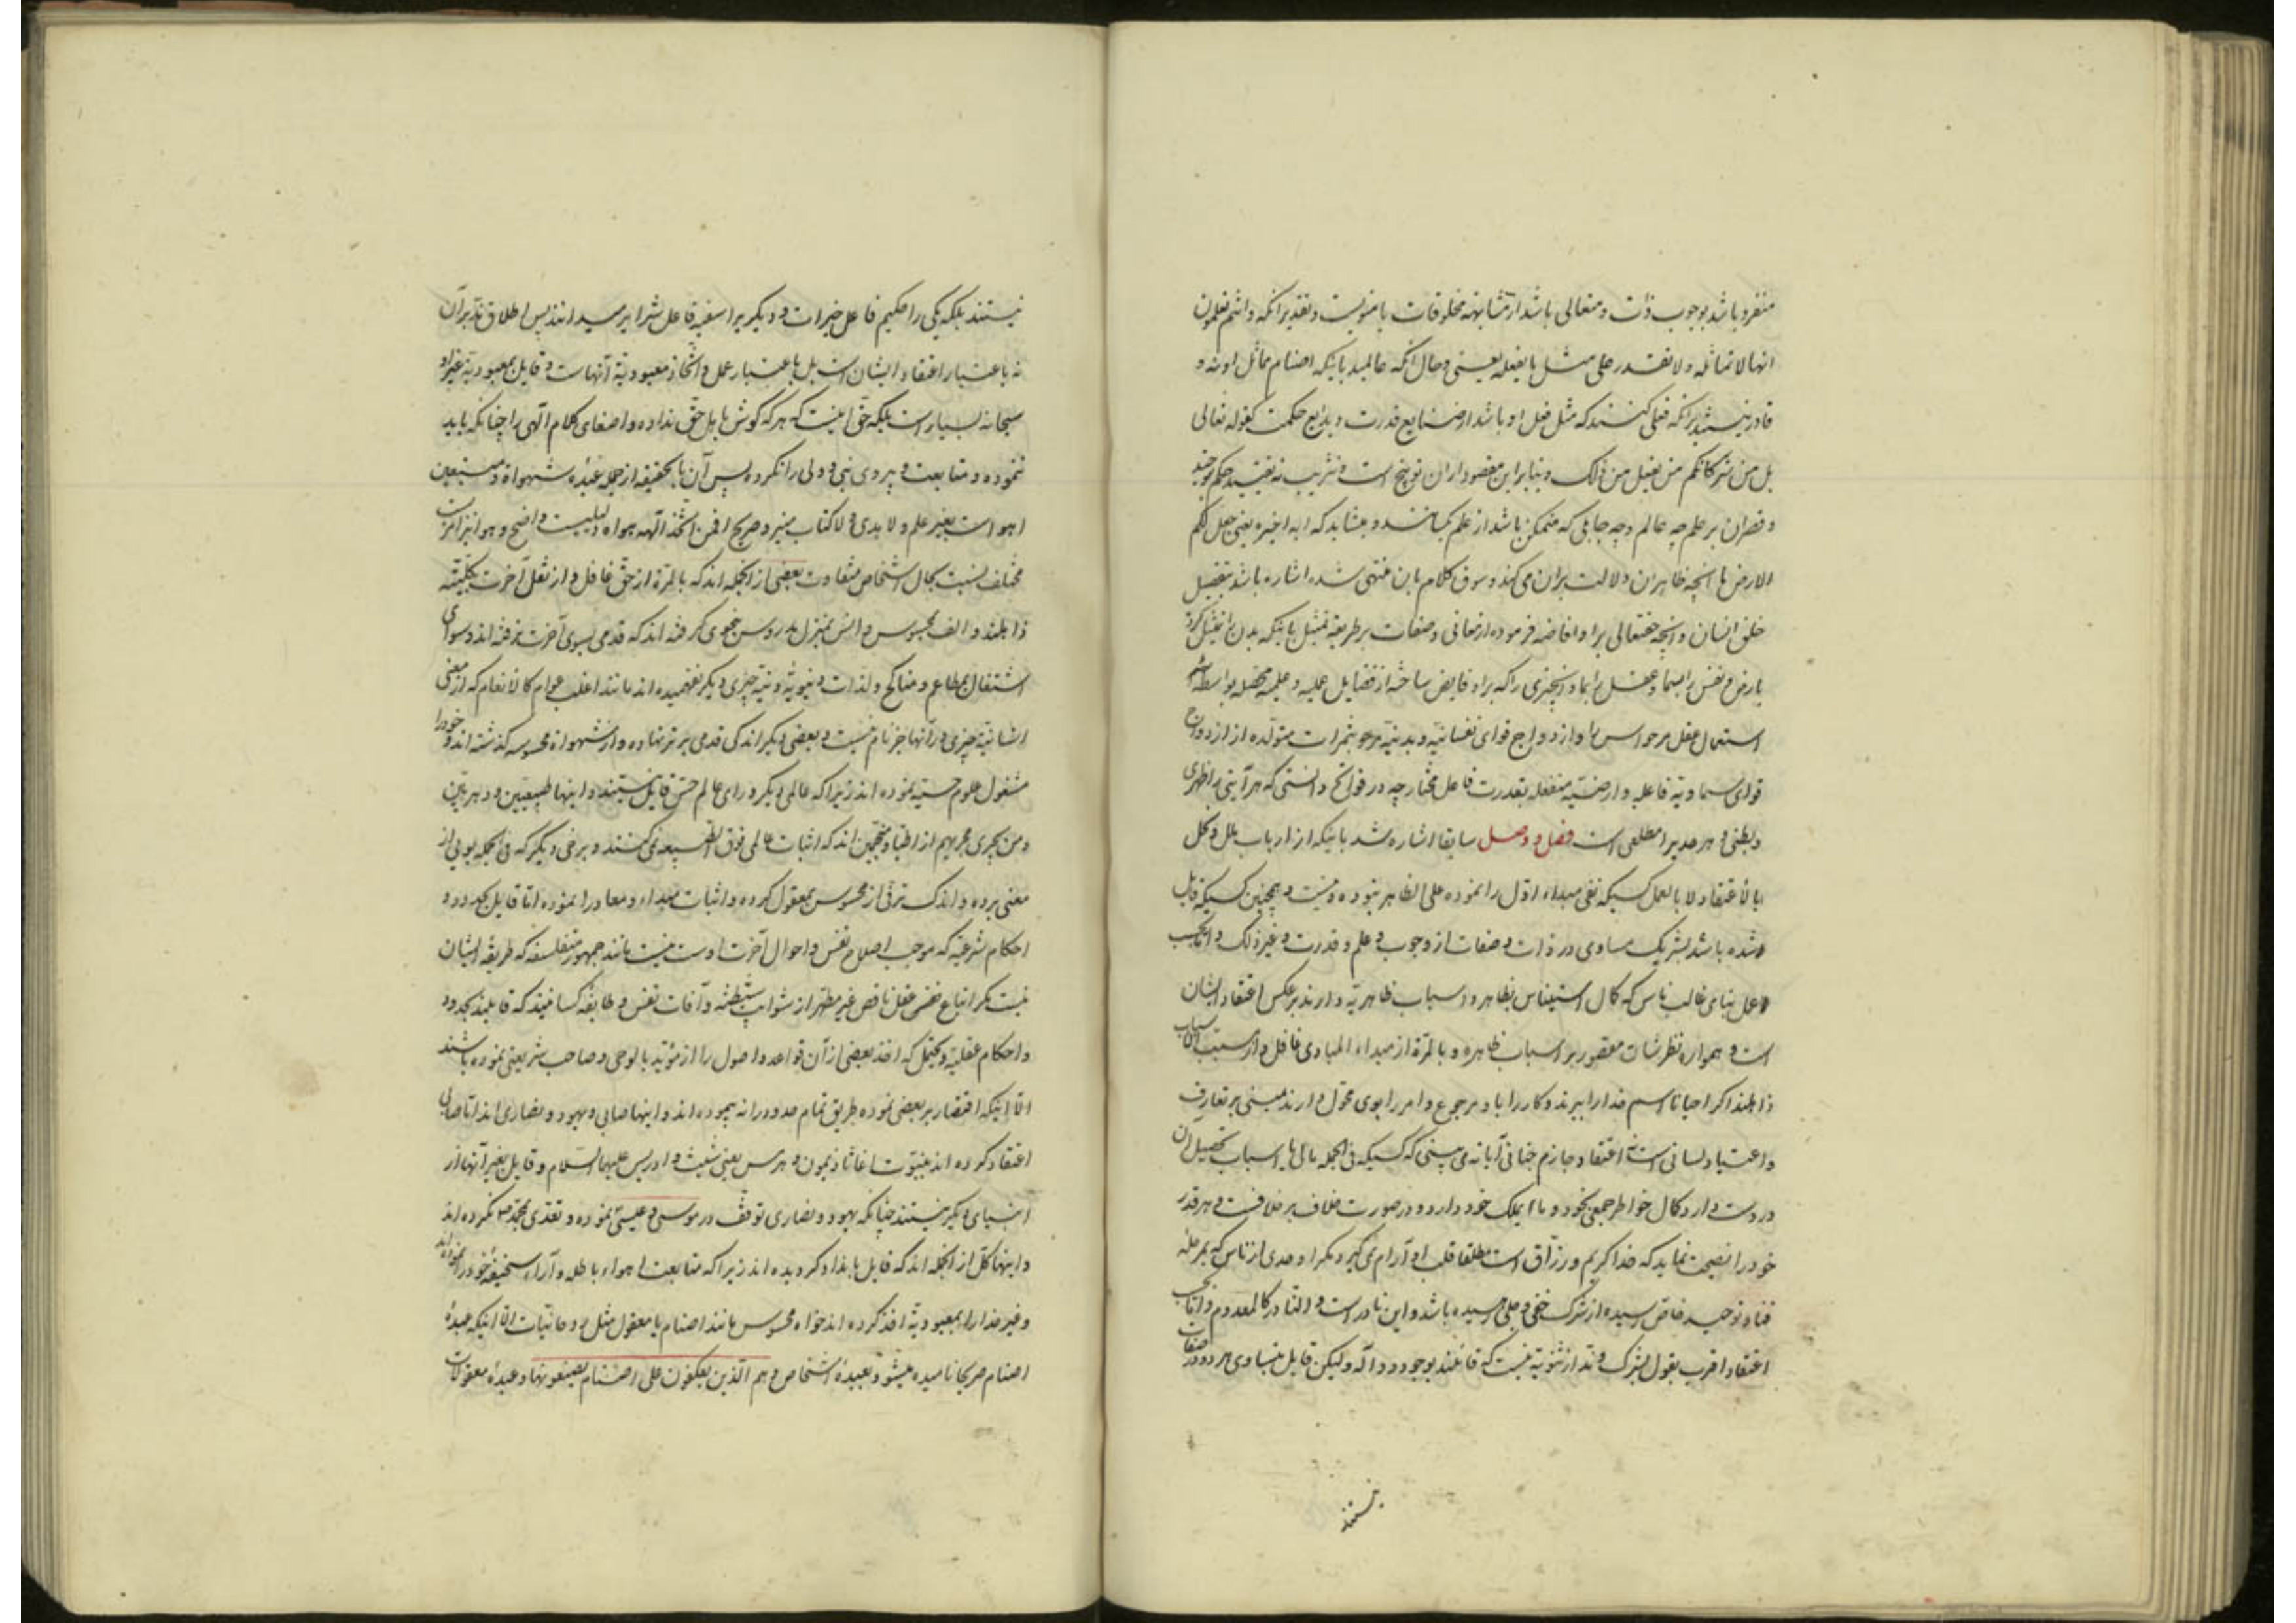 منفرد باشد بوجوب ذات و متعالی باشد از مشابهه مخلوقات یا منویست و تقدیر آنکه و انتم تعلمون
انها لا تماثله و لا تقدر علی مثل ما یفعله یعنی و حال آنکه عالمید باینکه اصنام مماثل او نه و
قادر نیستند بر آنکه فعلی کنند که مثل فعل او باشد از صنایع قدرت و بدایع حکمت کقوله تعالی
بل من شرکائکم من یفعل من ذلک و بنابراین مقصود از ان توبیخ است و تثریب نه تقیید حکم بوجود
و قصر ان بر علم چه عالم و چه جاهلی که متمکن باشد از علم یکسانند و میشاید که ایه اخیره یعنی جعل لکم
الارض با آنچه ظاهر ان دلالت بر ان می کند و سوق کلام بان منتهی شده اشاره باشد بتفصیل
خلق انسان و آنچه حقتعالی براو افاضه فرموده از معانی و صفات بر طریقه تمثیل باینکه بدن را تمثیل کرده
بارض و نفس را بسما و عقل را بماء و آنچیزی را که براو فایض ساخته از فضایل عملیه و علمیه محصله بواسطه
استعمال عقل مر حواس را و ازدواج قوای نفسانیه و بدنیه مر جو بثمرات متولده از ازدواج
قوای سماویه فاعلیه و ارضیه منفعله بقدرت فاعل مختار چه در فواتح دانستی که هر آیتی را ظهری
و بطنی و هر حد را مطلعی است فصل و وصل سابقا اشاره شد باینکه از ارباب ملل و نحل
لا بالاعتقاد و لا بالعمل کسیکه نفی مبداء اول را نموده علی الظاهر نبوده و نیست و همچنین کسیکه قایل
شده باشد بشریک مساوی در ذات و صفات از وجوب و علم و قدرت و غیر ذلک و اما بحسب
عمل بنای غالب ناس که کمال استیناس بظاهر و اسباب ظاهریه دارند بر عکس اعتقاد ایشان
است و همواره نظرشان مقصور بر اسباب ظاهره و بالمرة از مبداء المبادی غافل و از مسبب الاسباب
ذاهلند اگر احیانا اسم خدا را ببرند و کار را باو مرجوع و امر را بوی محول دارند مبنی بر تعارف
و اعتیاد لسانی است نه اعتقاد جازم جنانی آیا نه می بینی که کسیکه فی الجمله مالی یا اسباب تحصیل ان
در دست دارد کمال خواطر جمعی بخود و ما یملک خود دارد و در صورت خلاف بر خلافست و هر قدر
خود را نصیحت نماید که خدا کریم و رزاق است مطلقا قلب او آرام نمی گیرد مگر اوحدی از ناس که بمرحله
فناء و توحید خاص رسیده از شرک خفی و جلی رسیده باشد و این نادر است و النادر کالمعدوم و اما بحسب
اعتقاد اقرب بقول بشرک و ند از ثنویه نیست که قائلند بوجود دو اله و لیکن قایل بتساوی هر دو در صفات
نیستند
نیستند بلکه یکی را حکیم فاعل خیرات و دیگری را سفیه فاعل شرایر میدانند پس اطلاق ند بر آن
نه باعتبار اعتقاد ایشان است بل باعتبار عمل و اتخاذ معبودیة آنهاست و قایل بمعبودیه غیر او
سبحانه بسیار است بلکه حق اینست که هر که گوش باهل حق نداده و اصغای کلام الهی را چنانکه باید
ننموده و متابعت و پیروی نبی و ولی را نکرده پس آن بالحقیقه از جمله عبده شهواة و متبعین
اهواست بغیر علم و لا هدی و لا کتاب منیر و صریح افمن اتخذ الهه هواه دلیلیست واضح و هوا نیز
مختلف نسبت بحال اشخاص متفاوت بعضی از آنجمله اند که بالمرة از حق غافل و از نقل آخرت بکلیته
ذاهلند و الف بمحسوس و انس بمنزل مدروس بنحوی گرفته اند که قدمی بسوی آخرت نرفته اند و سوای
اشتغال بمطاعم و مناکح و لذات دنیویه دنیه چیزی دیگر نفهمیده اند مانند اغلب عوام کالانعام که از معنی
انسانیة چیزی در آنها جز نام نیست و بعضی دیگر اندکی قدمی برتر نهاده و از شهواة محسوسه گذشته اند و خود را
مشغول علوم حسیه نموده اند زیرا که عالمی دیگر ورای عالم حس قایل نیستند و اینها طبیعیین و دهریین
و من یجری مجریهم از اطبا و منجمین اند که اثبات عالمی فوق الطبیعه نمی کنند و برخی دیگر که فی الجمله بویی از
معنی برده و اندک ترقی از محسوس بمعقول کرده و اثبات مبداء و معاد را نموده اما قایل بحدود و
احکام شرعیه که موجب اصلاح نفس و احوال آخرت اوست نیست مانند جمهور متفلسفه که طریقه ایشان
نیست مگر اتباع نفس عقل ناقص غیر مطهر از شوایب شیطنه و آفات نفس و طایفه کسانیند که قایلند بحدود
و احکام عقلیه و یحتمل که اخذ بعضی از آن قواعد و اصول را از مؤید بالوحی و صاحب شریعتی نموده باشند
الا اینکه اقتصار بر بعضی نموده طریق تمام حدود را نه پیموده اند و اینها صابی و یهود و نصاری اند اما صابی
اعتقاد کرده اند بنبوت اغاثاذیمون و هرمس یعنی شیث و ادریس علیهما السلام و قایل بغیر آنها از
انبیای دیگر نیستند چنانکه یهود و نصاری توقف در موسی و عیسی نموده و تعدی بمحمد ص نکرده اند
و اینها کل از آنجمله اند که قایل بانداد گردیده اند زیرا که متابعت اهواء باطله و آراء سخیفه خود را نموده اند
و غیر خدا را بمعبودیة اخذ کرده اند خواه محسوس مانند اصنام یا معقول مثل روحانیات الا اینکه عبده
اصنام صریحا نامیده میشود بعبده اشخاص و هم الذین یعکفون علی اصنام یصنعونها و عبده معقولات